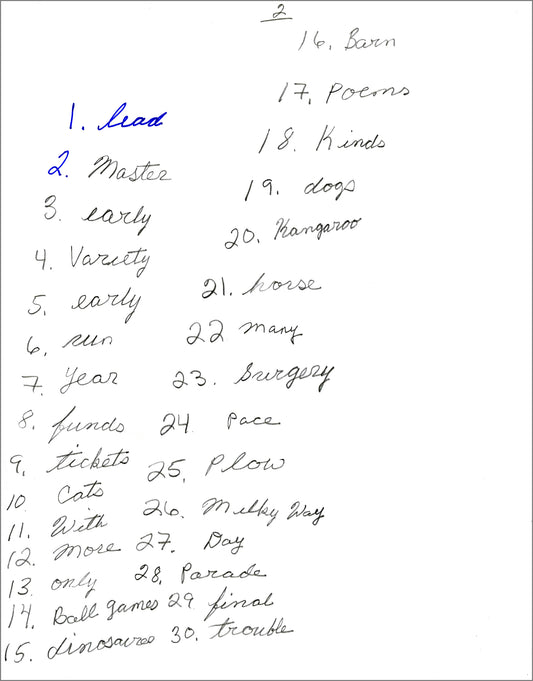 2
1. lead
2. Master
3. early
4. Variety
5. early
6. run
7. Year
8. funds
9. tickets
10 Cats
11. With
12. More
13. only
14. Ball games
15. dinosaures
16. Barn
17. Poems
18. Kinds
19. dogs
20. Kangaroo
21. horse
22 many
23. Surgery
24. Pace
25. Plow
26. Milky Way
27. Day
28. Parade
29 final
30. trouble